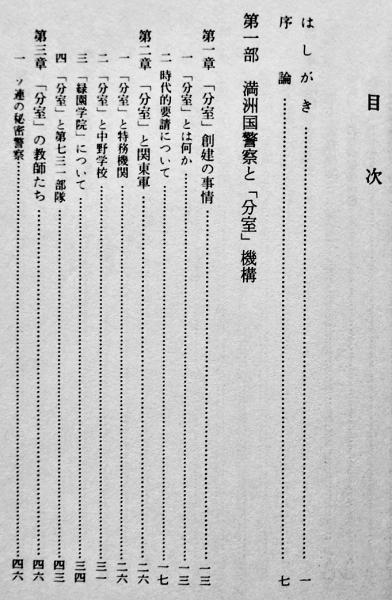 目次
はしがき……一
序論……七
第一部 満洲国警察と「分室」機構
第一章 「分室」創建の事情……一三
一 「分室」とは何か……一三
二 時代的要請について……一七
第二章 「分室」と関東軍……二六
一 「分室」と特務機関……二六
二 「分室」と中野学校……三一
三 「緑園学院」について……三四
四 「分室」と第七三一部隊……四三
第三章 「分室」の教師たち……四六
一 ソ連の秘密警察……四六